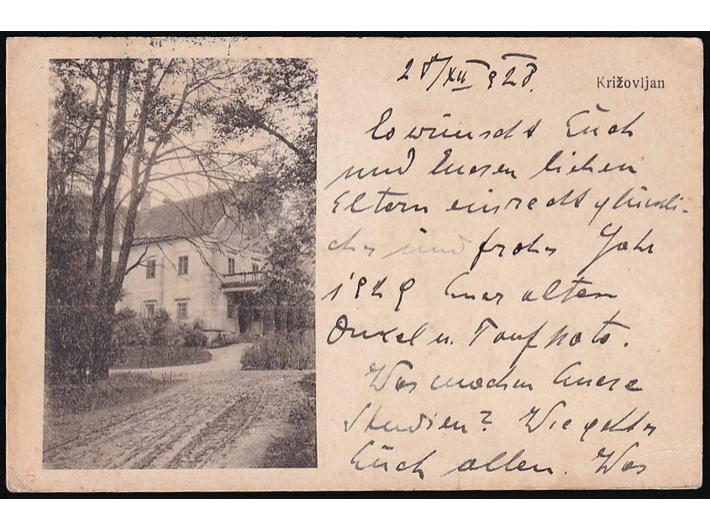 28/XII 928.
Križovljan
Es wünscht Euch
und Eueren lieben
Eltern ein recht glückli-
ches und frohes Jahr
1929 Euer alter
Onkel u. Taufpate.
Was machen Euere
Studien? Wie geht es
Euch allen. Was